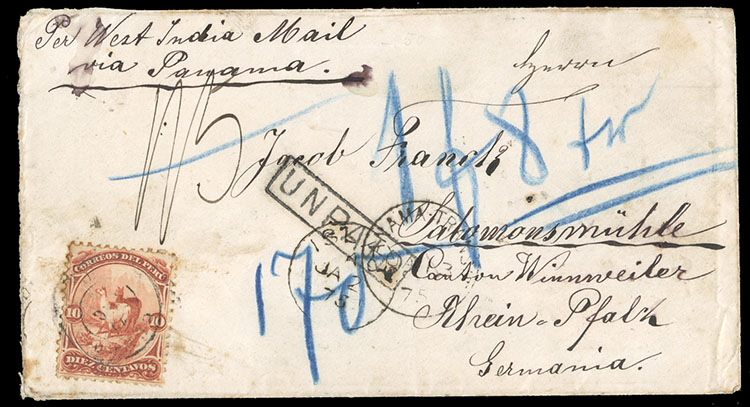 Per West India Mail
via Panama.
Herrn
Jacob Franck
Salomonsmühle
Canton Winnweiler
Rhein-Pfalz
Germania.
UNPAID
JA 2
75
75
170
CORREOS DEL PERU
10 10
DIEZ CENTAVOS